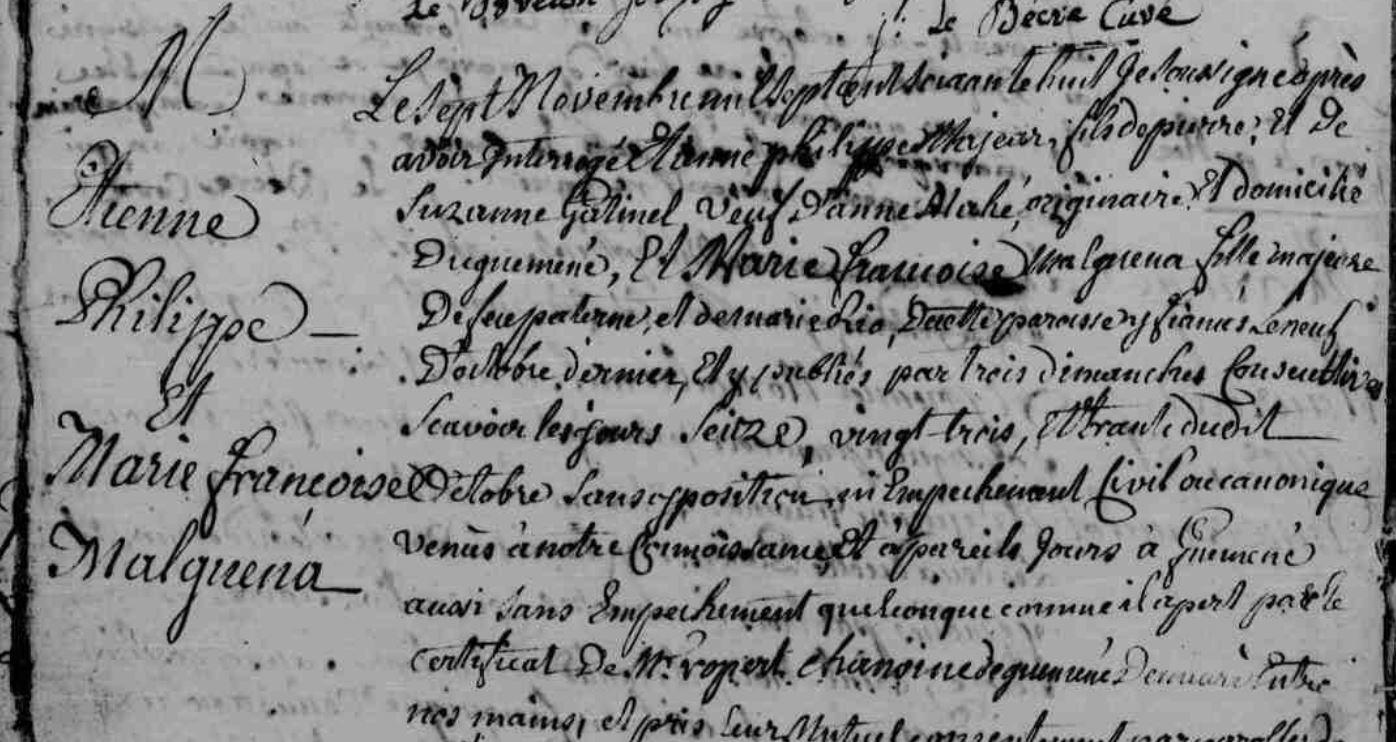 j: Le Décre Curé
M
Etienne
Philippe —
Et
Marie françoise
Malguena
Le sept Novembre mil sept cent soixante huit Je soussigné après
avoir Interrogé Etienne philippe Majeur, fils de pierre, Et De
Suzanne Gatinel Veuf D'anne Mahé, originaire Et domicilié
Duguemené, Et Marie françoise Malguena fille majeure
De feu paterne, et de marie Rio, De cette paroisse y fiancés Le neuf
D'octobre dernier, Et y publiés par trois dimanches Consecutives
Scavoir les jours Seize, vingt-trois, Et trante dudit
Octobre sans opposition, ni Empechement Civil ou canonique
venûs à notre Connoissance, Et à pareils Jours à Guemené
aussi sans Empechement quelconque comme il apert par le
certificat De Mr. ropert. chanoine de guemené Demuré Entre
nos mains, et pris leur Mutuel consentement par parolles De